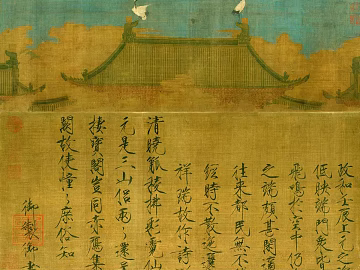 政和壬辰上元之
低映端門眾皆
飛鳴於空中仍
之端頗甚閑適
往來都民無不
經時不散迤邐
祥瑞故作詩
清曉觚稜拂彩霓仙
元是三山侶兩〻還
棲寶閣豈同赤鴈集
闕故使憧〻庶俗知
御製御